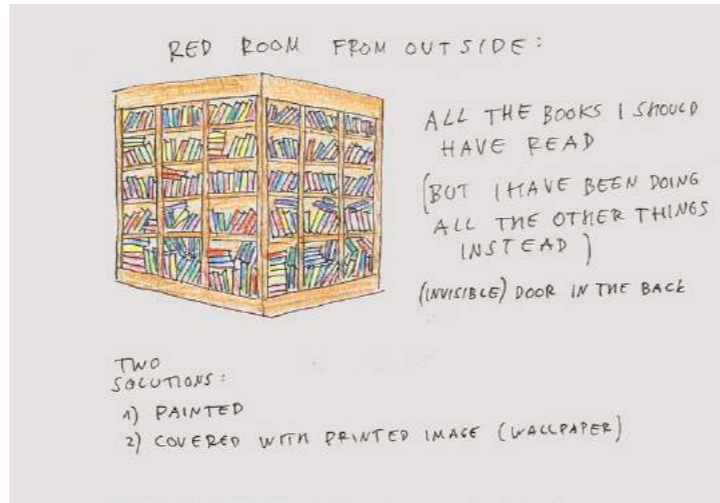 RED ROOM FROM OUTSIDE:
ALL THE BOOKS I SHOULD
HAVE READ
(BUT I HAVE BEEN DOING
ALL THE OTHER THINGS
INSTEAD)
(INVISIBLE) DOOR IN THE BACK
TWO
SOLUTIONS:
1) PAINTED
2) COVERED WITH PRINTED IMAGE (WALLPAPER)